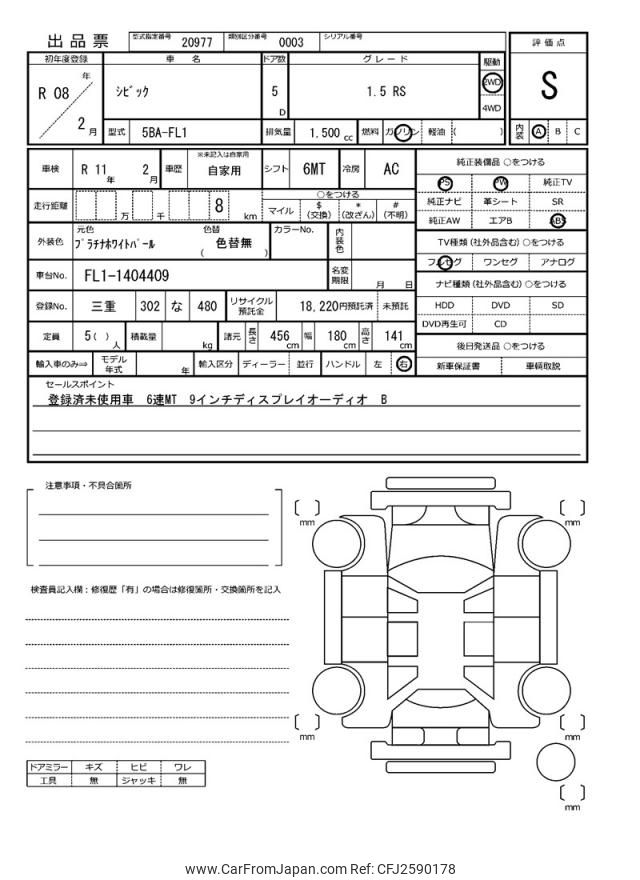 出品票 型式指定番号 20977 類別区分番号 0003 シリアル番号
評価点
S
初年度登録 車名 ドア数 グレード 駆動
R 08 年 2 月
ｼﾋﾞｯｸ 5 D 1.5 RS 2WD
4WD
型式 5BA-FL1 排気量 1.500 cc 燃料 ガソリン 軽油 ( )
内装 A B C
車検 R 11 年 2 月 車歴 ※未記入は自家用 自家用 シフト 6MT 冷房 AC
走行距離 万 千 8 km
○をつける
マイル $(交換) *(改ざん) #(不明)
外装色 元色 ﾌﾟﾗﾁﾅﾎﾜｲﾄﾊﾟｰﾙ 色替 ( 色替無 ) カラーNo. 内装色
車台No. FL1-1404409 名変期限 月 日
登録No. 三重 302 な 480 リサイクル預託金 18,220円預託済 未預託
定員 5 ( ) 人 積載量 kg 諸元 長さ 456 cm 幅 180 cm 高さ 141 cm
輸入車のみ⇒ モデル年式 年 輸入区分 ディーラー 並行 ハンドル 左 右
純正装備品 ○をつける
PS PW 純正TV
純正ナビ 革シート SR
純正AW エアB ABS
TV種類 (社外品含む) ○をつける
フルセグ ワンセグ アナログ
ナビ種類 (社外品含む) ○をつける
HDD DVD SD
DVD再生可 CD
後日発送品 ○をつける
新車保証書 車輌取説
セールスポイント
登録済未使用車 6速MT 9インチディスプレイオーディオ B
注意事項・不具合箇所
検査員記入欄：修復歴「有」の場合は修復箇所・交換箇所を記入
mm
mm
mm
mm
mm
ドアミラー キズ ヒビ ワレ
工具 無 ジャッキ 無
www.CarFromJapan.com Ref: CFJ2590178